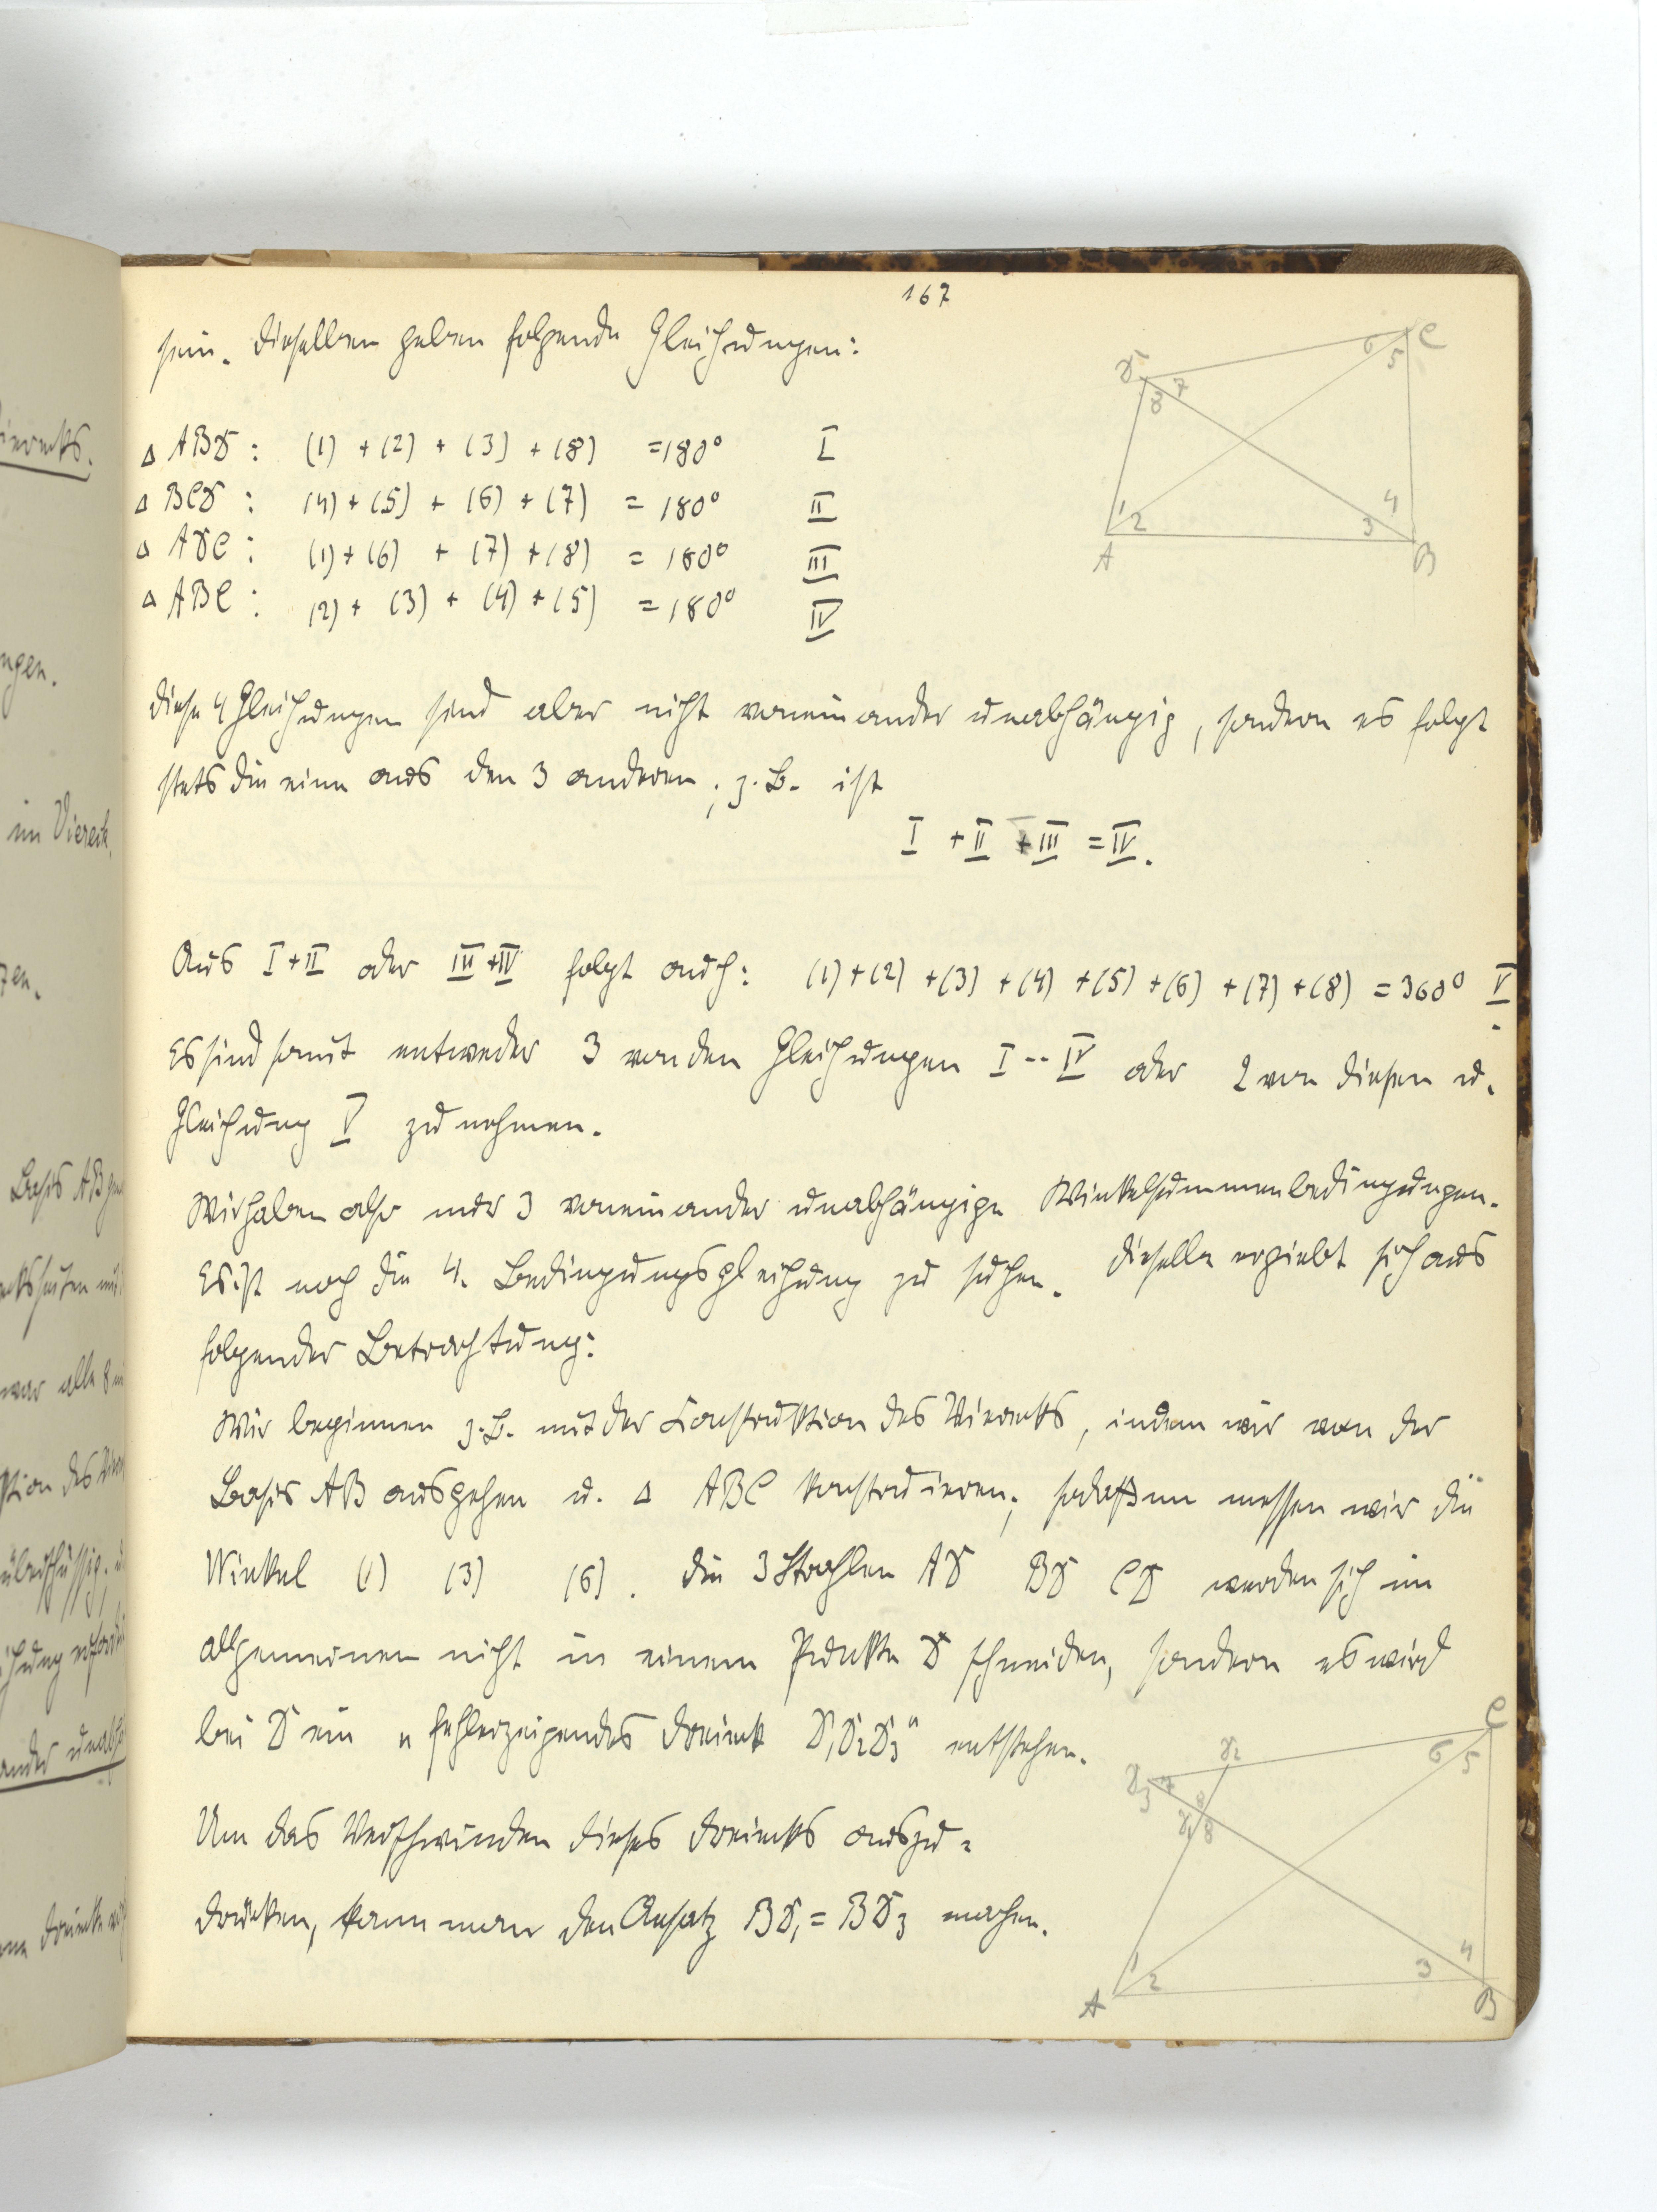 167
sein. Dieselben geben folgende Gleichungen:
△ ABD : (1) + (2) + (3) + (8) = 180° I
△ BCD : (4) + (5) + (6) + (7) = 180° II
△ ADC : (1) + (6) + (7) + (8) = 180° III
△ ABC : (2) + (3) + (4) + (5) = 180° IV
D C
6 5
7
8
1 2 3 4
A B
Diese 4 Gleichungen sind aber nicht voneinander unabhängig, sondern es folgt
stets die eine aus den 3 anderen; z. B. ist
I + II + III = IV.
Aus I + II oder III + IV folgt auch: (1) + (2) + (3) + (4) + (5) + (6) + (7) + (8) = 360° V.
Es sind somit entweder 3 von den Gleichungen I -- IV oder 2 von diesen u.
Gleichung V zu nehmen.
Wir haben also nur 3 voneinander unabhängige Winkelsummenbedingungen.
Es ist noch die 4. Bedingungsgleichung zu suchen. Dieselbe ergiebt sich aus
folgender Betrachtung:
Wir beginnen z. B. mit der Construktion des Vierecks, indem wir von der
Basis AB ausgehen u. △ ABC konstruieren; sodann messen wir die
Winkel (1) (3) (6). Die 3 Strahlen AD BD CD werden sich im
allgemeinen nicht in einem Punkte D schneiden, sondern es wird
bei D ein „fehlerzeigendes Dreieck D₁D₂D₃" entstehen.
Um das Verschwinden dieses Dreiecks auszu-
drücken, kann man den Ansatz BD₁ = BD₃ machen.
C
D₂
D₃ 7
6 5
D₁ 8
1 2 3 4
A B
ierecks.
ngen.
im Viereck.
zen.
Basis AB